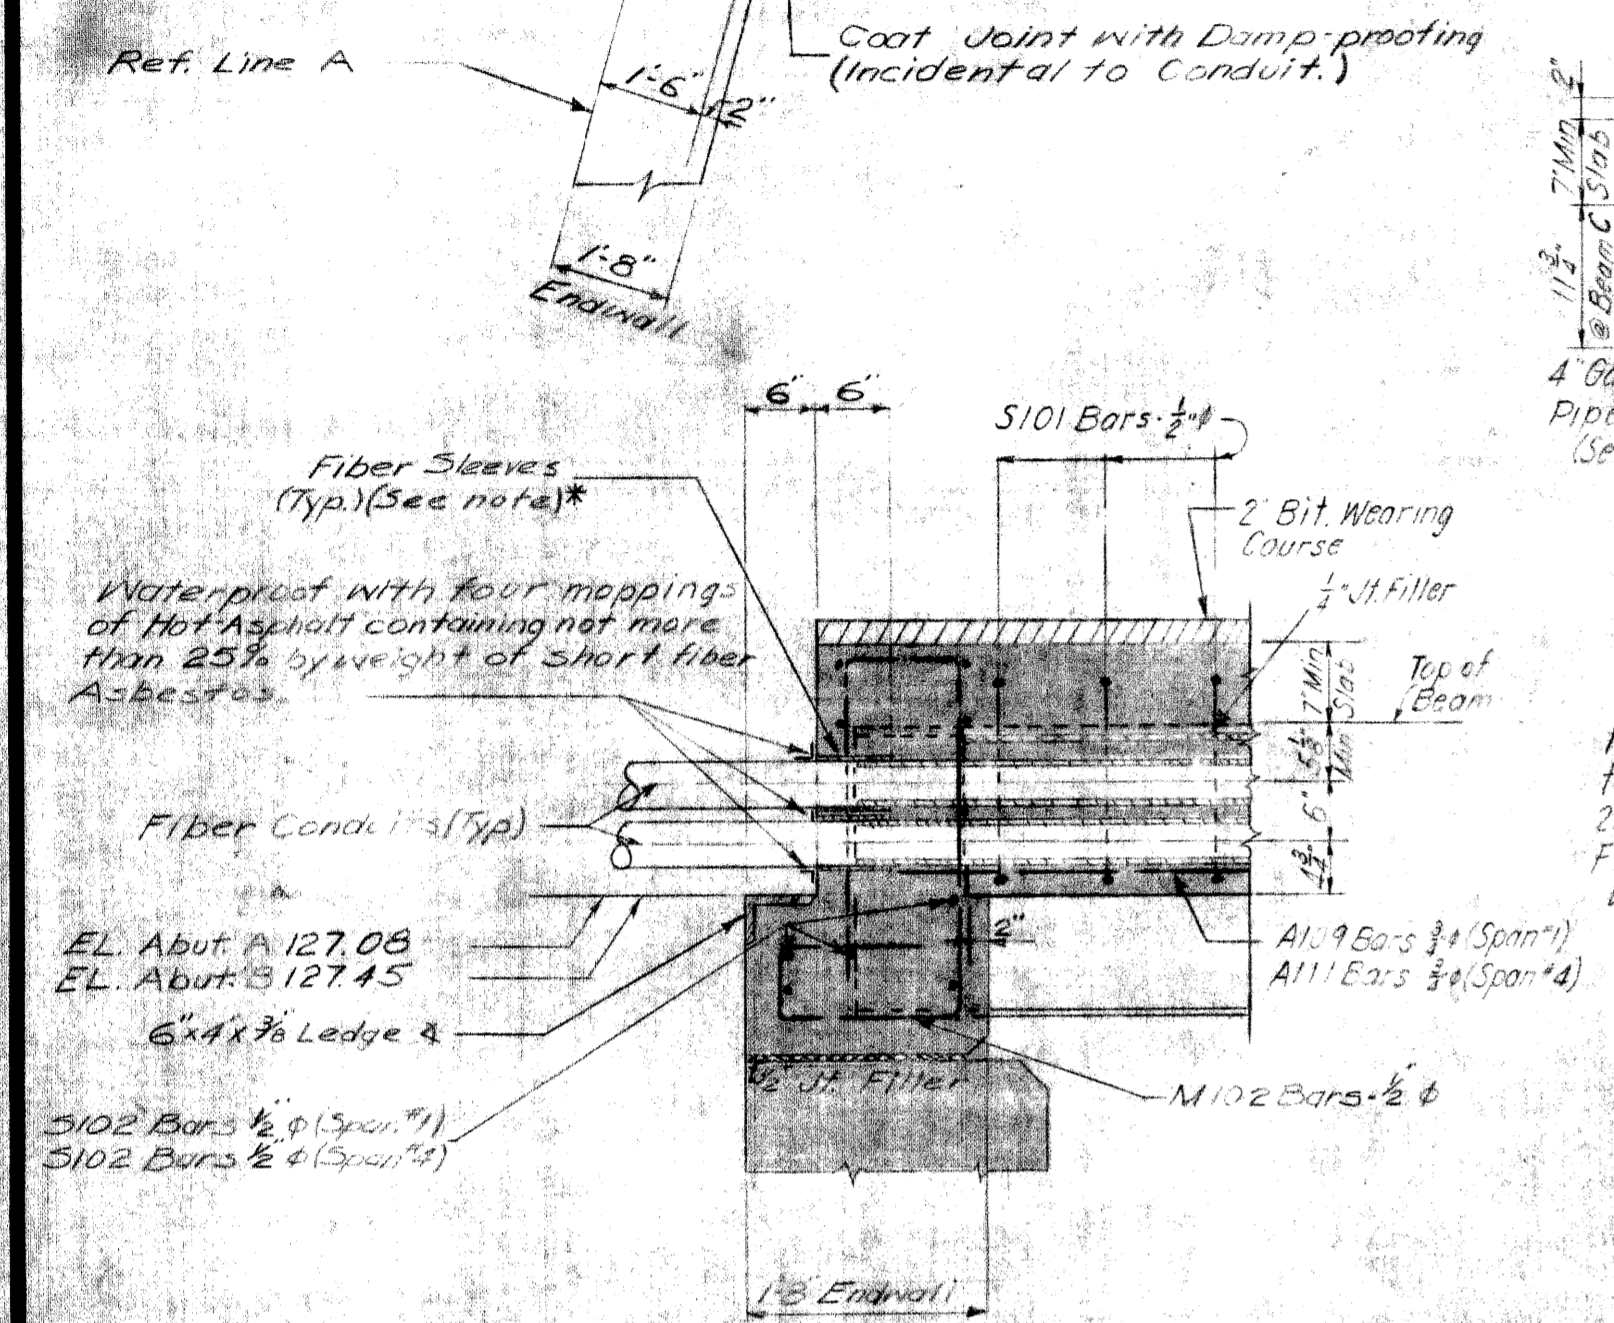 Ref. Line A
1'-6"
2"
Coat Joint with Damp-proofing
(Incidental to Conduit.)
1'-8"
Endwall
2"
7" Min.
Slab
11 3/4"
@ Beam C
4"
(Se
6" 6"
S101 Bars - 1/2" ϕ
Fiber Sleeves
(Typ.)(See note)*
2" Bit. Wearing
Course
1/4" Jt. Filler
Waterproof with four moppings
of Hot Asphalt containing not more
than 25% by weight of short fiber
Asbestos.
7" Min.
Slab
Top of
Beam
Min.
6"
Fiber Conduits (Typ)
4 3/4"
EL. Abut. A 127.08
EL. Abut. B 127.45
2"
A109 Bars 3/4" ϕ (Span #1)
A111 Bars 3/4" ϕ (Span #4)
6"x4"x3/8" Ledge ∠
1/2" Jt. Filler
M102 Bars - 1/2" ϕ
S102 Bars 1/2" ϕ (Span #1)
S102 Bars 1/2" ϕ (Span #4)
1'-8" Endwall